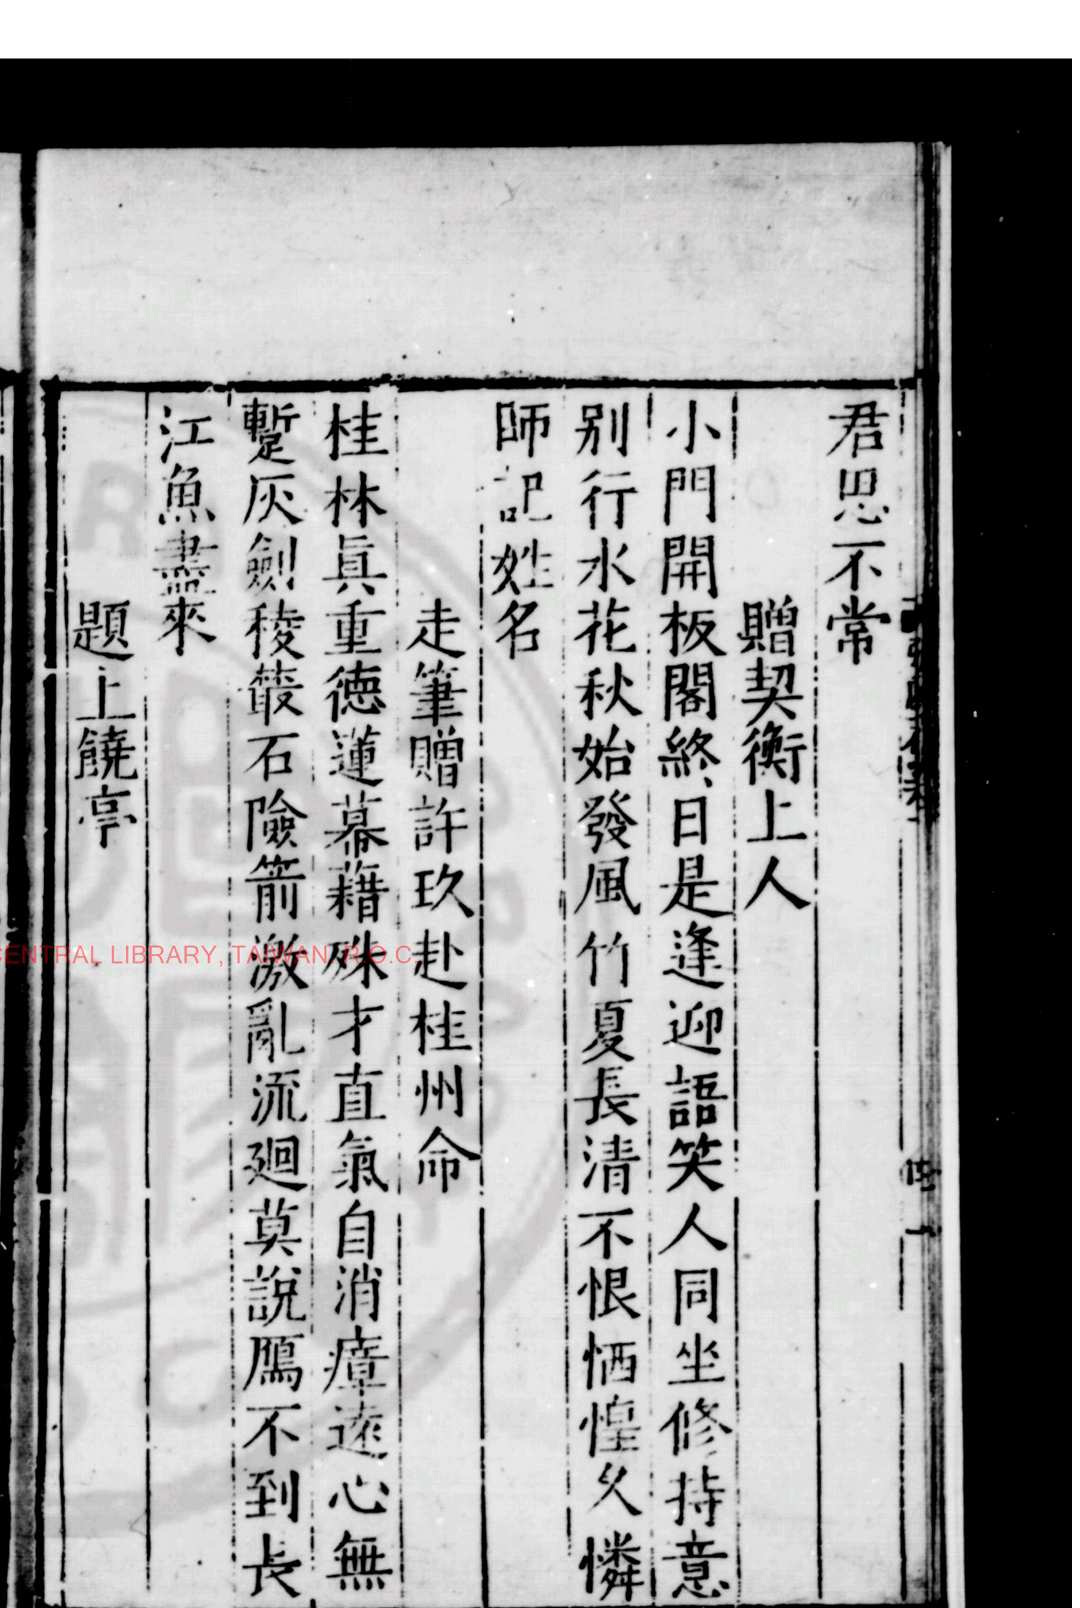 君思不常
贈契衡上人
小門開板閣終日是逢迎語笑人同坐修持意
別行水花秋始發風竹夏長清不恨恓惶久憐
師記姓名
走筆贈許玖赴桂州命
桂林眞重德蓮幕藉殊才直氣自消瘴遠心無
蹔灰劍稜叢石險箭激亂流廻莫說鴈不到長
江魚盡來
題上饒亭
CENTRAL LIBRARY, TAIWAN, R.O.C.